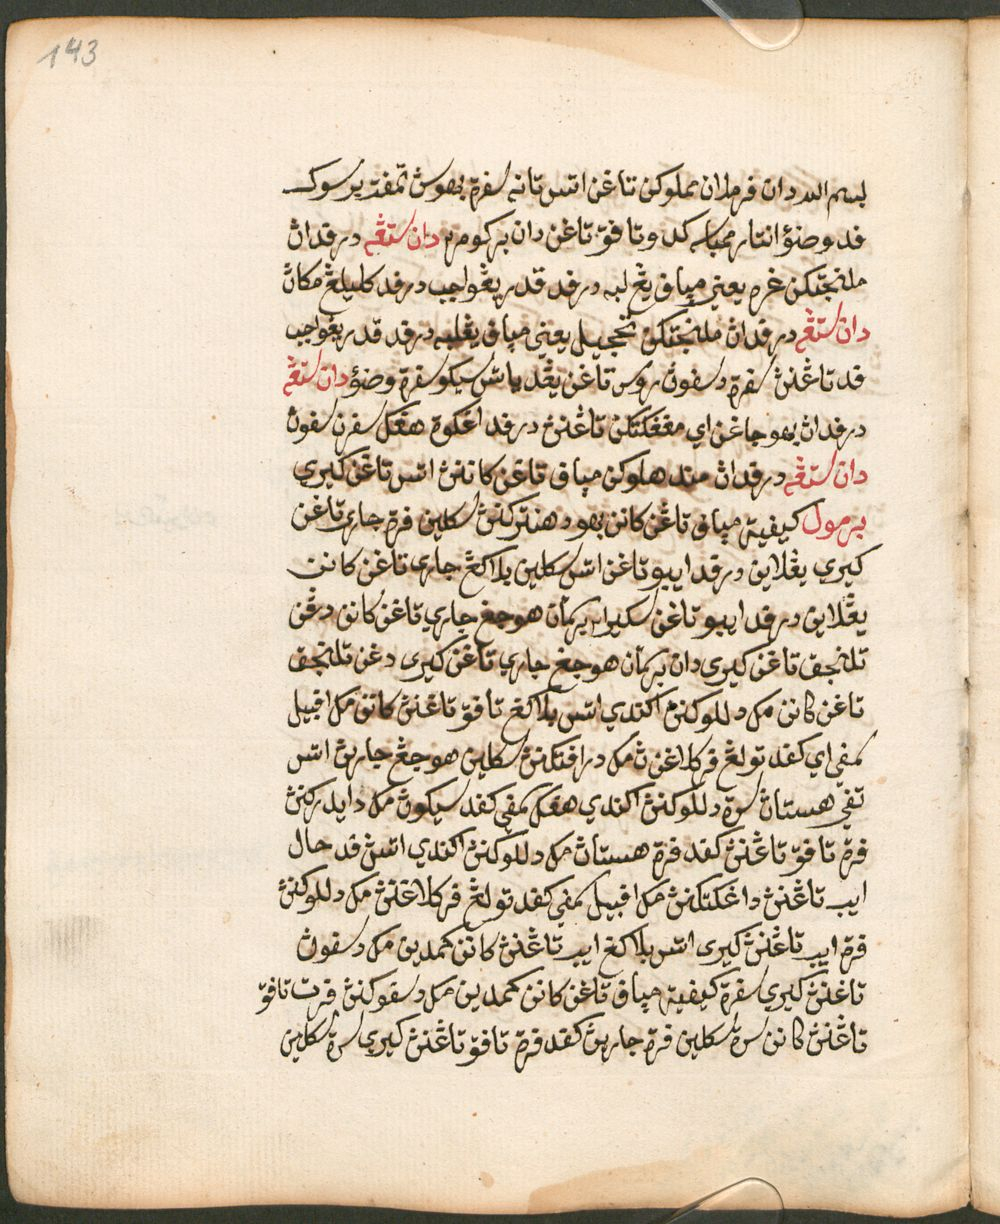 143
بسم الله دان فرملان مملوكن تاڠن اتس تانه سفرة بهوس تمفت برسوكـ
فد وضوٴ انتار ممباسه كدو تافق تاڠن دان بركومر٢ دان ستڠه درفداڽ
ملنجتكن غره يعني مپاف يڠ لبه درفد قدر يڠ واجب درفد كليلڠ مكاڽ
دان ستڠه درفداڽ ملنجتكن تحجيل يعني مپاف يڠ لبه درفد قدر يڠ واجب
فد تاڠنڽ سفرة دسفوڽ روس تاڠن يڠ دباسه سيكو سفرة وضوٴ دان ستڠه
درفداڽ بهو جاڠن اي مڠڠكتكن تاڠنڽ درفد اڠكوت هڠݢل سفرن سفوڽ
دان ستڠه درفداڽ منداهلوكن مپاف تاڠن كاننڽ اتس تاڠن كيري
برمول كيفية مپاف تاڠن كانن بهو دهنتركنڽ سكلين فرة جاري تاڠن
كيري يڠلاين درفد ايبو تاڠن اتس سكلين بلاكڠ جاري تاڠن كانن
يڠلاين درفد ايبو تاڠن سكيرا٢ برتمان هوجڠ جاري تاڠن كانن دڠن
تلنجق تاڠن كيري دان برتمان هوجڠ جاري تاڠن كيري دڠن تلنجق
تاڠن كانن مك دللوكنڽ اكندي اتس بلاكڠ تافق تاڠنڽ كانن مك افبيل
سمفي اي كفد تولڠ فركلاڠنڽ مك درافتكنڽ سكلين هوجڠ جارين اتس
تفي هستاڽ سرت دللوكنڽ اكندي هڠݢ سمفي كفد سيكوڽ مك دايدركنڽ
فرة تافق تاڠنڽ كفد فرة هستاڽ مك دللوكنڽ اكندي اتسڽ فد حال
ايب تاڠنڽ داڠكتكنڽ مك افبيل سمفي كفد تولڠ فركلاڠنڽ مك دللوكنڽ
فرة ايب تاڠنڽ كيري اتس بلاكڠ ايب تاڠنڽ كانن كمدين مك دسفوڽ
تاڠنڽ كيري سفرة كيفية مپاف تاڠن كانن كمدين مك دسفوكنڽ فرت تافق
تاڠنڽ كانن سرت سكلين فرة جارين كفد فرة تافق تاڠنڽ كيري سرت سكلين